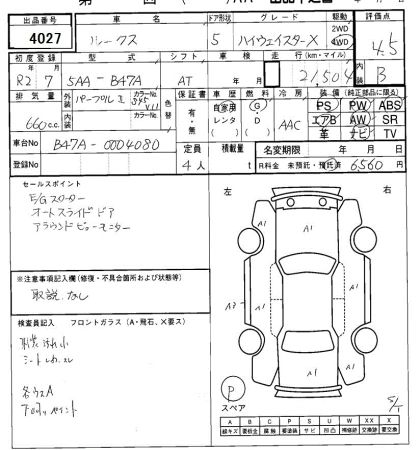 出品番号 車名 ドア形状 グレード 駆動 評価点
4027 ルークス 5 ハイウェイスターX 2WD 4WD 4.5
初度登録 型式 シフト 車検 走行(km・マイル) 内装
R2年 7月 5AA-B47A AT 年 月 21,504 B
排気量 外装 パープルⅡ カラーNo. 色替 保証書 車歴 燃料 冷房 装備(純正部品に限る)
660cc. 内装 カラーNo. 有・無 自家用 レンタ ( ) G・D ( ) AAC PS PW ABS
エアB AW SR
革 ナビ TV
車台No B47A-0004080 定員 積載量 名変期限 年 月 日
登録No 4人 t R料金 未預託・預託済 6560円
セールスポイント
E/Gスターター
オートスライドドア
アラウンドビューモニター
左 右
A1
A1
A1
A1
A1
※注意事項記入欄(修復・不具合箇所および状態等)
取説なし
検査員記入 フロントガラス(A・飛石、X要ス)
内装汚れ小
各ウスA
P
スペア
5/1
A B C P S U W X XX
線キズ 要板金 腐蝕 要塗装 サビ 凹凸 補修跡 交換跡 要交換